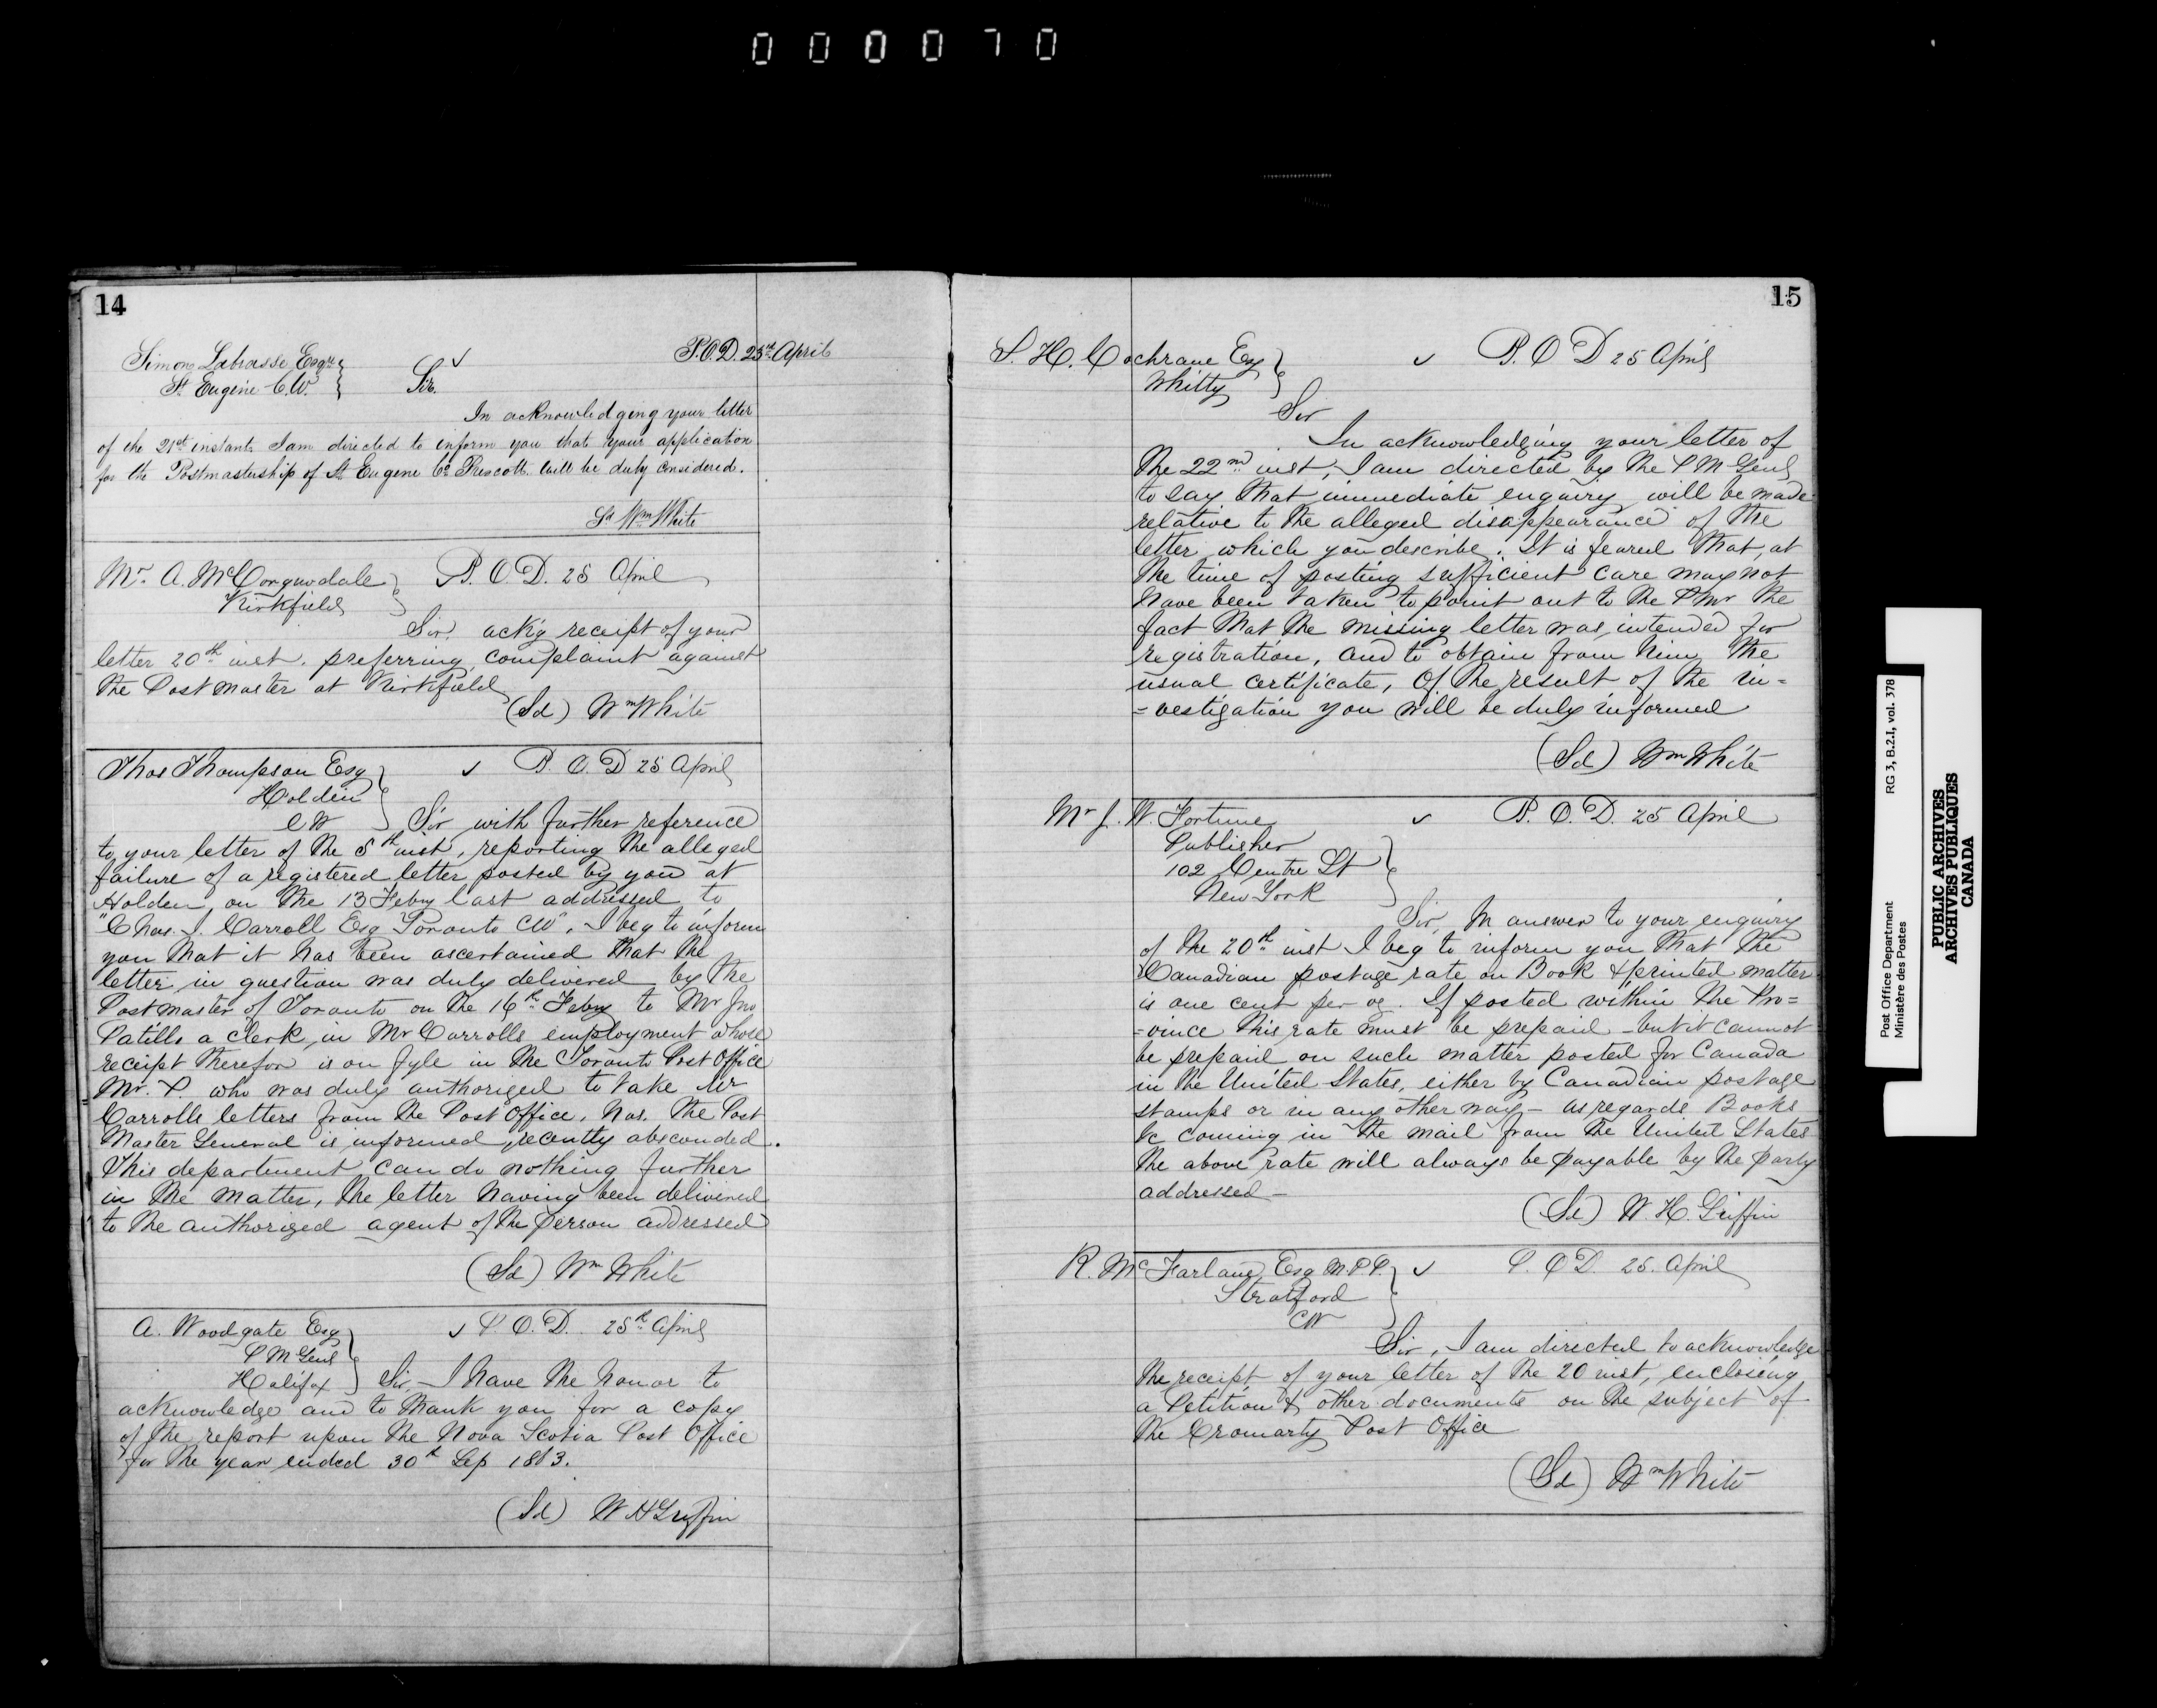 0 0 0 0 7 0
14
P.O.D. 25th April
Simon Labrosse Esqr
St Eugène C.W.
Sir.
In acknowledging your letter
of the 21st instant I am directed to inform you that your application
for the Postmastership of St Eugene Co Prescott will be duly considered.
Sd Wm White
Mr. A. McCorquodale
Kirkfield
P.O.D. 25 April
Sir. ackg receipt of your
letter 20th inst. preferring complaint against
the Postmaster at Kirkfield
(Sd) Wm White
Thos Thompson Esq
Holden
CW
P.O.D 25 April
Sir with further reference
to your letter of the 5th inst, reporting the alleged
failure of a registered letter posted by you at
Holden, on the 13 Febry last addressed to
"Chas. J. Carroll Esq Toronto CW", I beg to inform
you that it has been ascertained that the
letter in question was duly delivered by the
Postmaster of Toronto on the 16th Febry to Mr Jno
Patills a clerk, in Mr Carrolls employment whose
receipt therefor is on fyle in the Toronto Post Office
Mr. P. who was duly authorized to take Mr
Carrolls letters from the Post Office, has, the Post
Master General is informed, recently absconded.
This department can do nothing further
in the matter, the letter having been delivered
to the authorized agent of the person addressed
(Sd) Wm White
A. Woodgate Esq
PM Genl
Halifax
P.O.D. 25th April
Sir, I have the honor to
acknowledge and to thank you for a copy
of the report upon the Nova Scotia Post Office
for the year ended 30th Sep 1863.
(Sd) W H Griffin
15
S. H. Cochrane Esq
Whitby
P.O D 25 April
Sir
In acknowledging your letter of
the 22nd inst, I am directed by the P M Genl
to say that immediate enquiry will be made
relative to the alleged disappearance of the
letter which you describe. It is feared that, at
the time of posting sufficient care may not
have been taken to point out to the PMr the
fact that the missing letter was intended for
registration, and to obtain from him the
usual certificate, Of the result of the in=
=vestigation you will be duly informed
(Sd) Wm White
Mr J. W. Fortune
Publisher
102 Centre St
New York
P.O.D. 25 April
Sir, In answer to your enquiry
of the 20th inst I beg to inform you that the
Canadian postage rate on Book & printed matter
is one cent per oz. If posted within the Pro=
=vince this rate must be prepaid - but it cannot
be prepaid on such matter posted for Canada
in the United States, either by Canadian postage
stamps or in any other way - as regards Books
&c coming in the mail from the United States
the above rate will always be payable by the party
addressed -
(Sd) W. H. Griffin
R. McFarlane Esq M.P.P.
Stratford
CW
P.O D. 25. April
Sir, I am directed to acknowledge
the receipt of your letter of the 20 inst, enclosing
a Petition & other documents on the subject of
the Cromarty Post Office
(Sd) Wm White
Post Office Department
Ministère des Postes
RG 3, B.2.I, vol. 378
PUBLIC ARCHIVES
ARCHIVES PUBLIQUES
CANADA